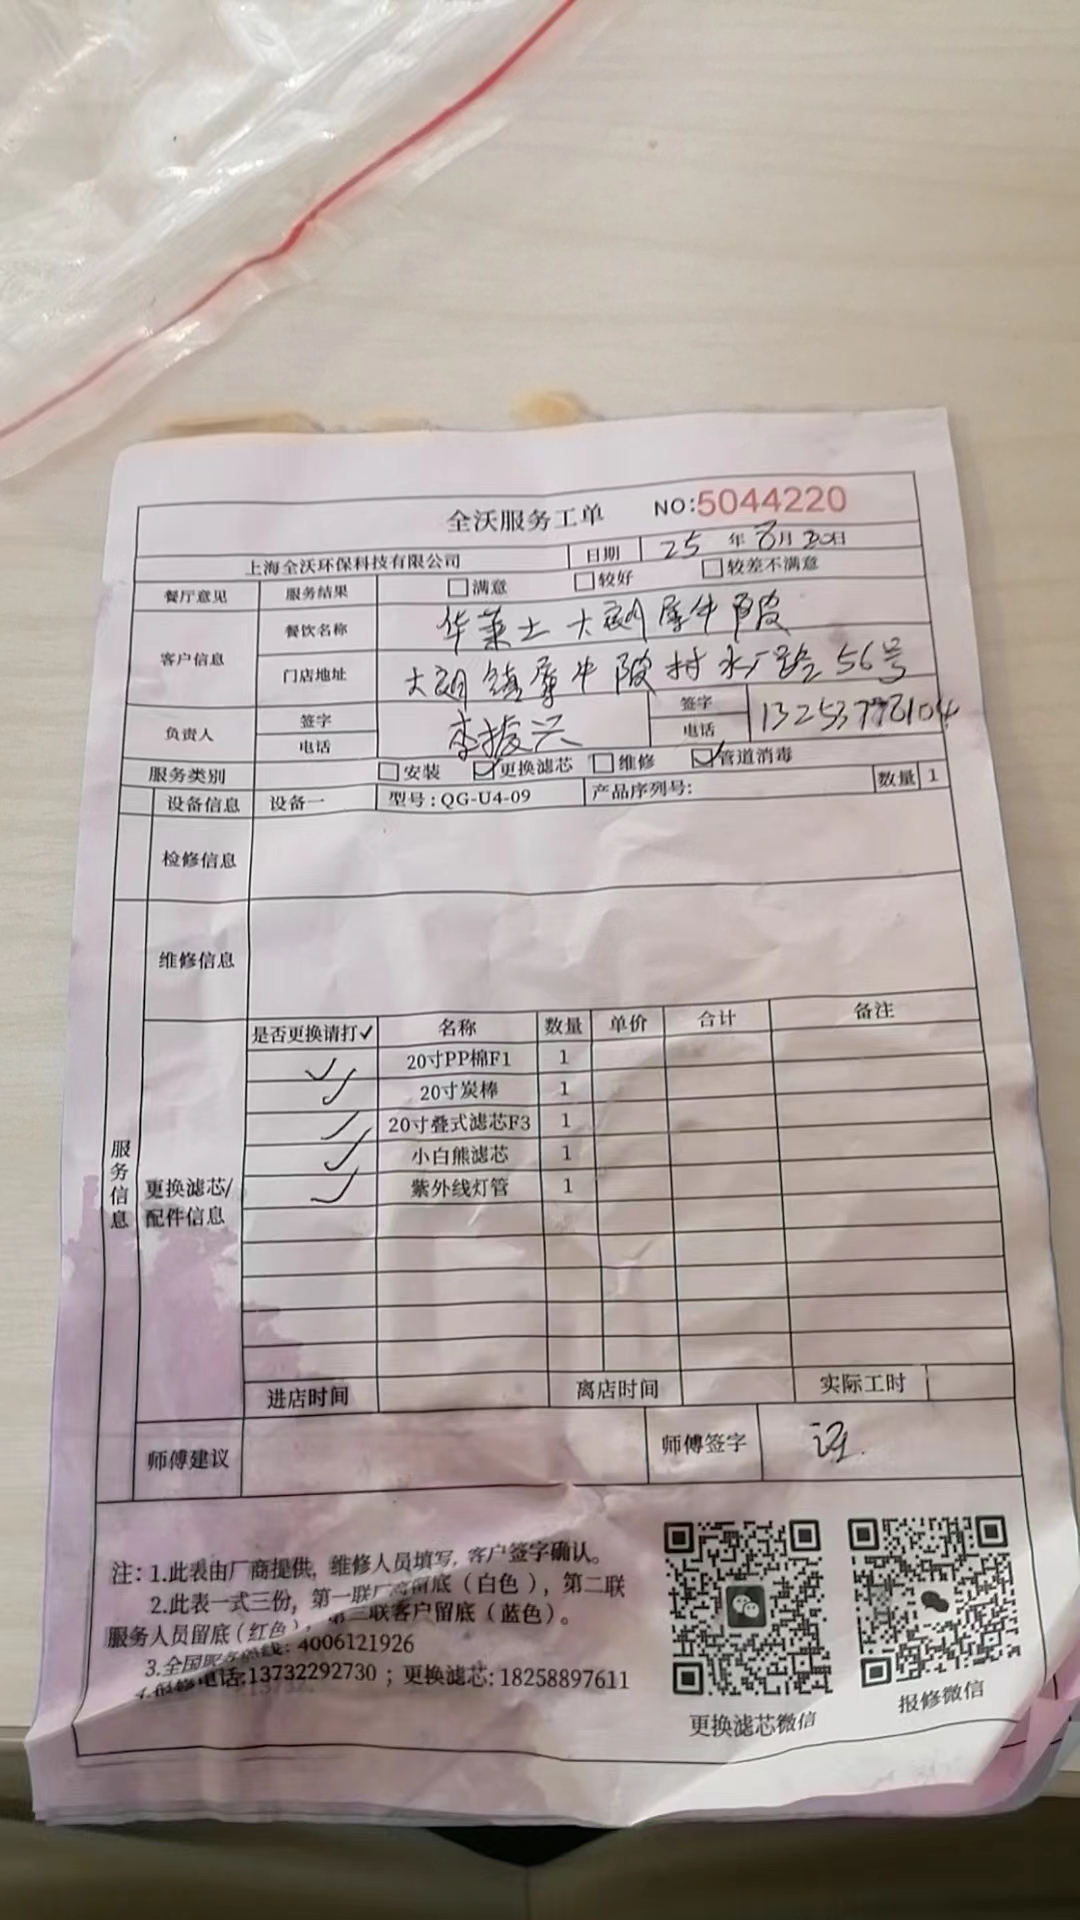 全沃服务工单 NO:5044220
上海全沃环保科技有限公司 日期 25 年 8月30日
餐厅意见 服务结果 □满意 □较好 □较差不满意
客户信息 餐饮名称 华莱士大朗犀牛陂
门店地址 大朗镇犀牛陂村水厂路56号
负责人 签字 电话 李振兴 签字 电话
服务类别 □安装 ☑更换滤芯 □维修 ☑管道消毒
设备信息 设备一 型号:QG-U4-09 产品序列号: 数量 1
检修信息
维修信息
服务信息
更换滤芯/配件信息
是否更换请打✓ 名称 数量 单价 合计 备注
✓ 20寸PP棉F1 1
✓ 20寸炭棒 1
✓ 20寸叠式滤芯F3 1
✓ 小白熊滤芯 1
✓ 紫外线灯管 1
进店时间 离店时间 实际工时
师傅建议 师傅签字
注:1.此表由厂商提供,维修人员填写,客户签字确认。
2.此表一式三份,第一联厂商留底(白色),第二联
服务人员留底(红色),第三联客户留底(蓝色)。
3.全国服务热线:4006121926
4.报修电话:13732292730;更换滤芯:18258897611
更换滤芯微信
报修微信